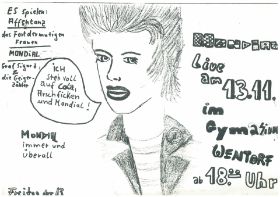 ES Spielen:
Affentanz
des Fordermutigen
Frauen
MONDIAL
Graf Sigurd
&
die Geiger-
zähler
ICH
steh voll
auf
Arschficken
und Mondial!
MONDIAL
immer und
überall
Live
am
13.11.
im
Gymnasium
WENTORF
ab 18.00 Uhr